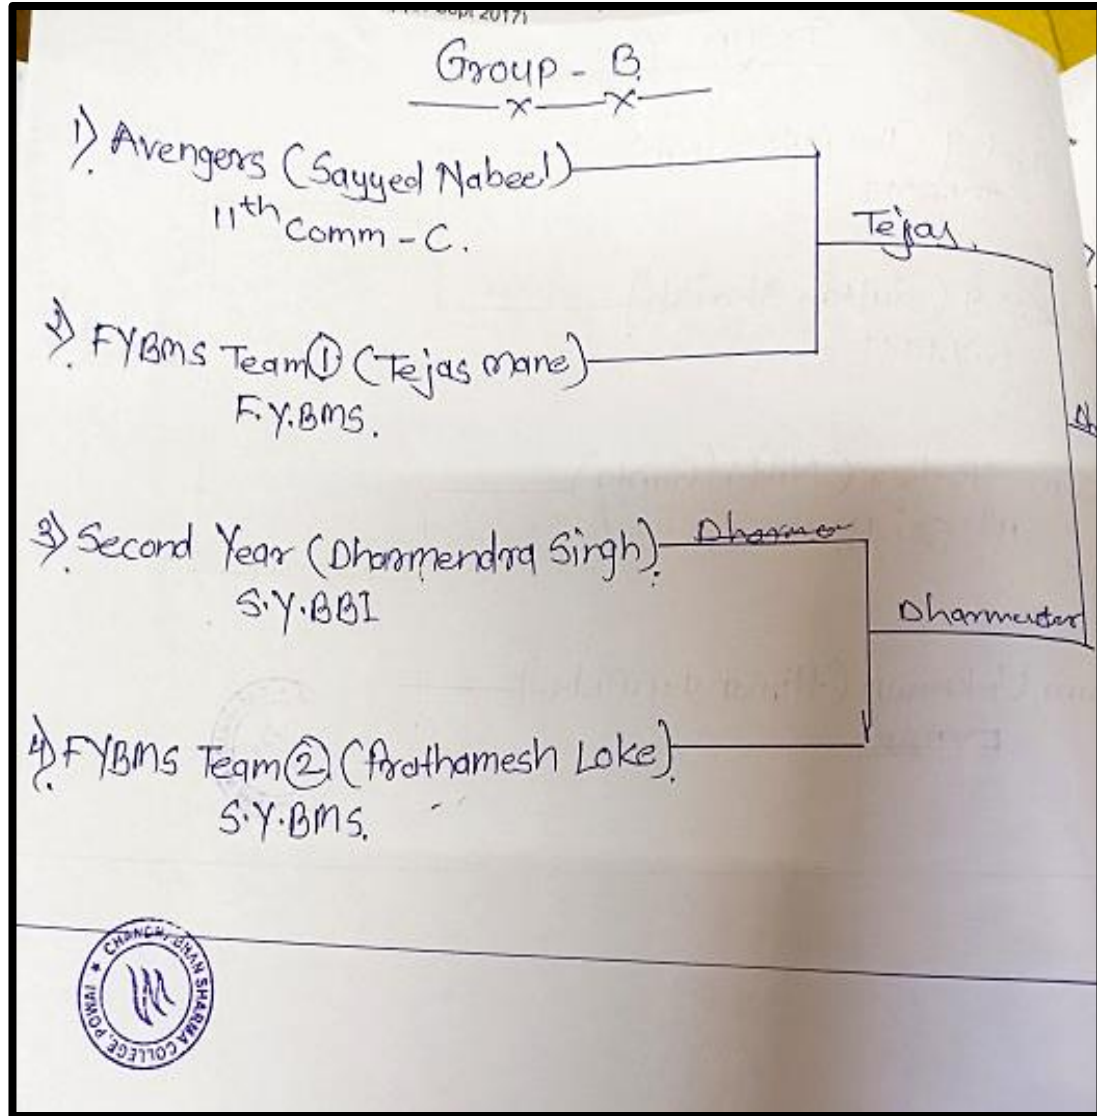 Sept 2017)
Group - B.
1) Avengers (Sayyed Nabeel)
11th Comm - C.
Tejas.
2) FYBMS Team ① (Tejas Mane)
F.Y.BMS.
3) Second Year (Dharmendra Singh).
S.Y.BBI
Dharme
4) FYBMS Team ② (Prathamesh Loke).
S.Y.BMS.
CHANDRABHAN SHARMA COLLEGE, POWAI